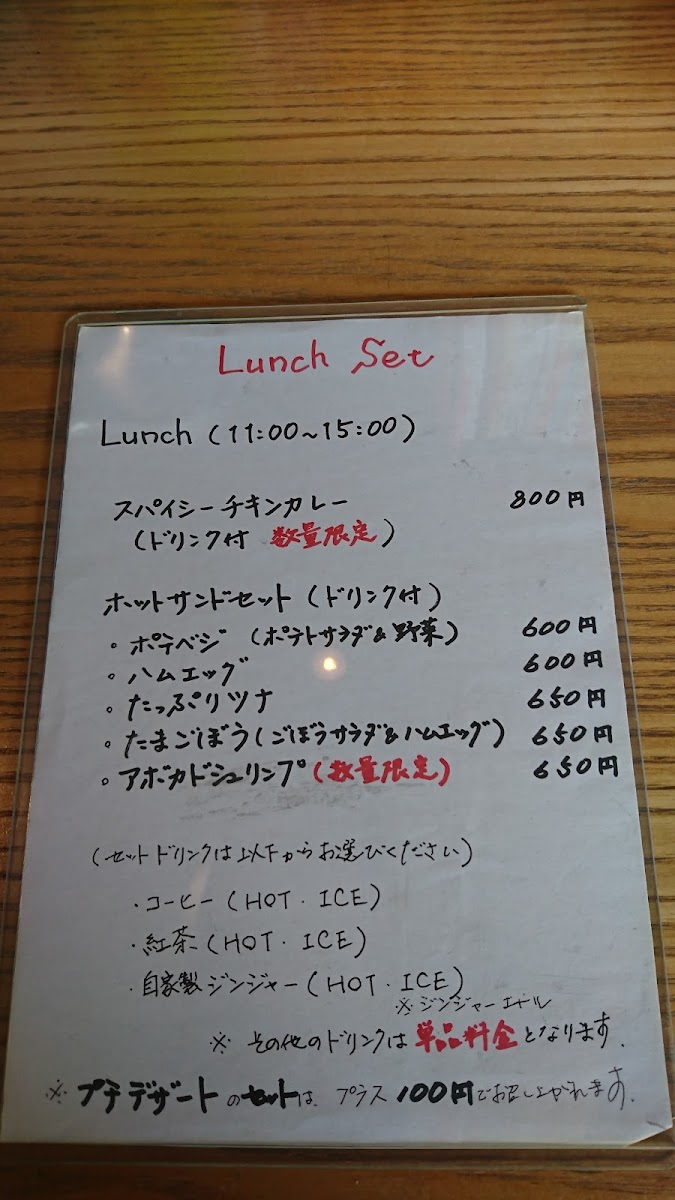 Lunch Set
Lunch (11:00~15:00)
スパイシーチキンカレー 800円
(ドリンク付 数量限定)
ホットサンドセット (ドリンク付)
・ポテベジ (ポテトサラダ&野菜) 600円
・ハムエッグ 600円
・たっぷりツナ 650円
・たまごぼう(ごぼうサラダ&ハムエッグ) 650円
・アボカドシュリンプ(数量限定) 650円
(セットドリンクは以下からお選びください)
・コーヒー(HOT・ICE)
・紅茶(HOT・ICE)
・自家製ジンジャー(HOT・ICE)
※ジンジャーエール
※ その他のドリンクは単品料金となります.
※ プチデザートのセットは、プラス100円でお召し上がれます.